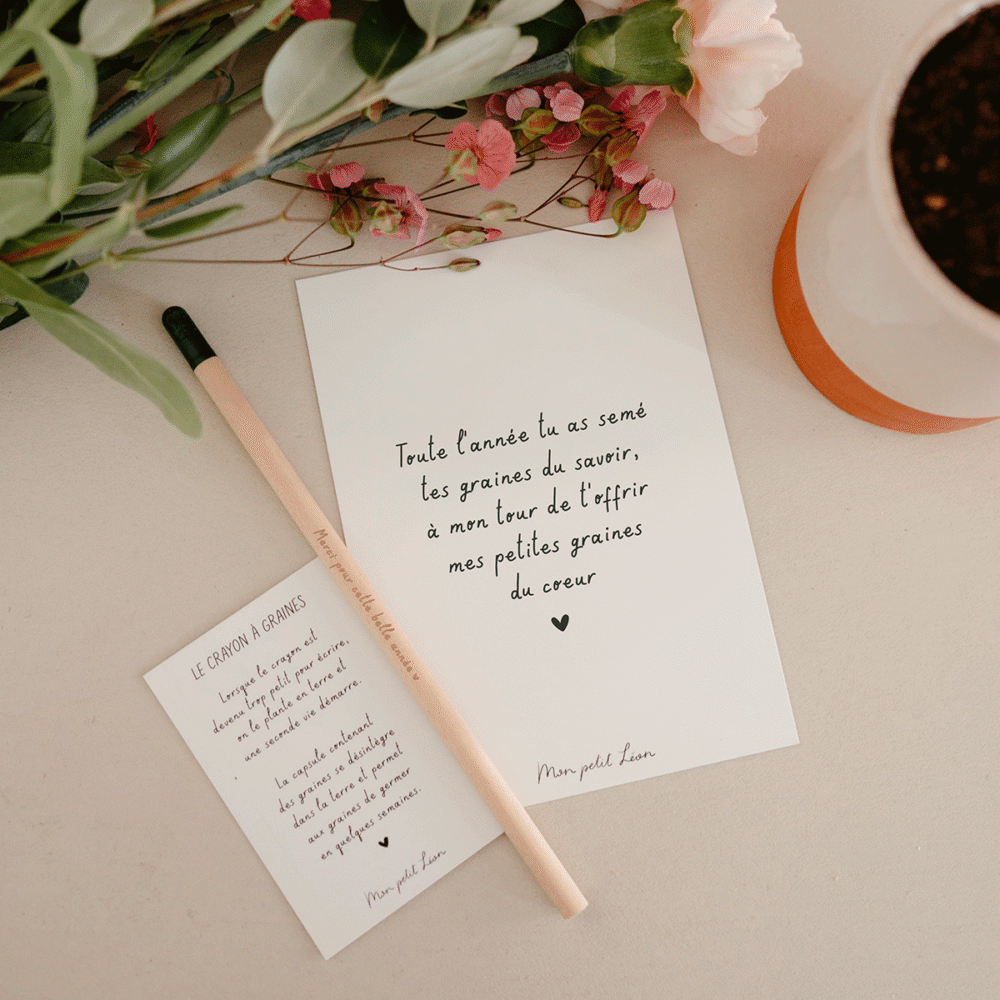 Toute l'année tu as semé
tes graines du savoir,
à mon tour de t'offrir
mes petites graines
du coeur
Mon petit Léon
Merci pour cette belle année
LE CRAYON À GRAINES
Lorsque le crayon est
devenu trop petit pour écrire,
on le plante en terre et
une seconde vie démarre.
La capsule contenant
des graines se désintègre
dans la terre et permet
aux graines de germer
en quelques semaines.
Mon petit Léon